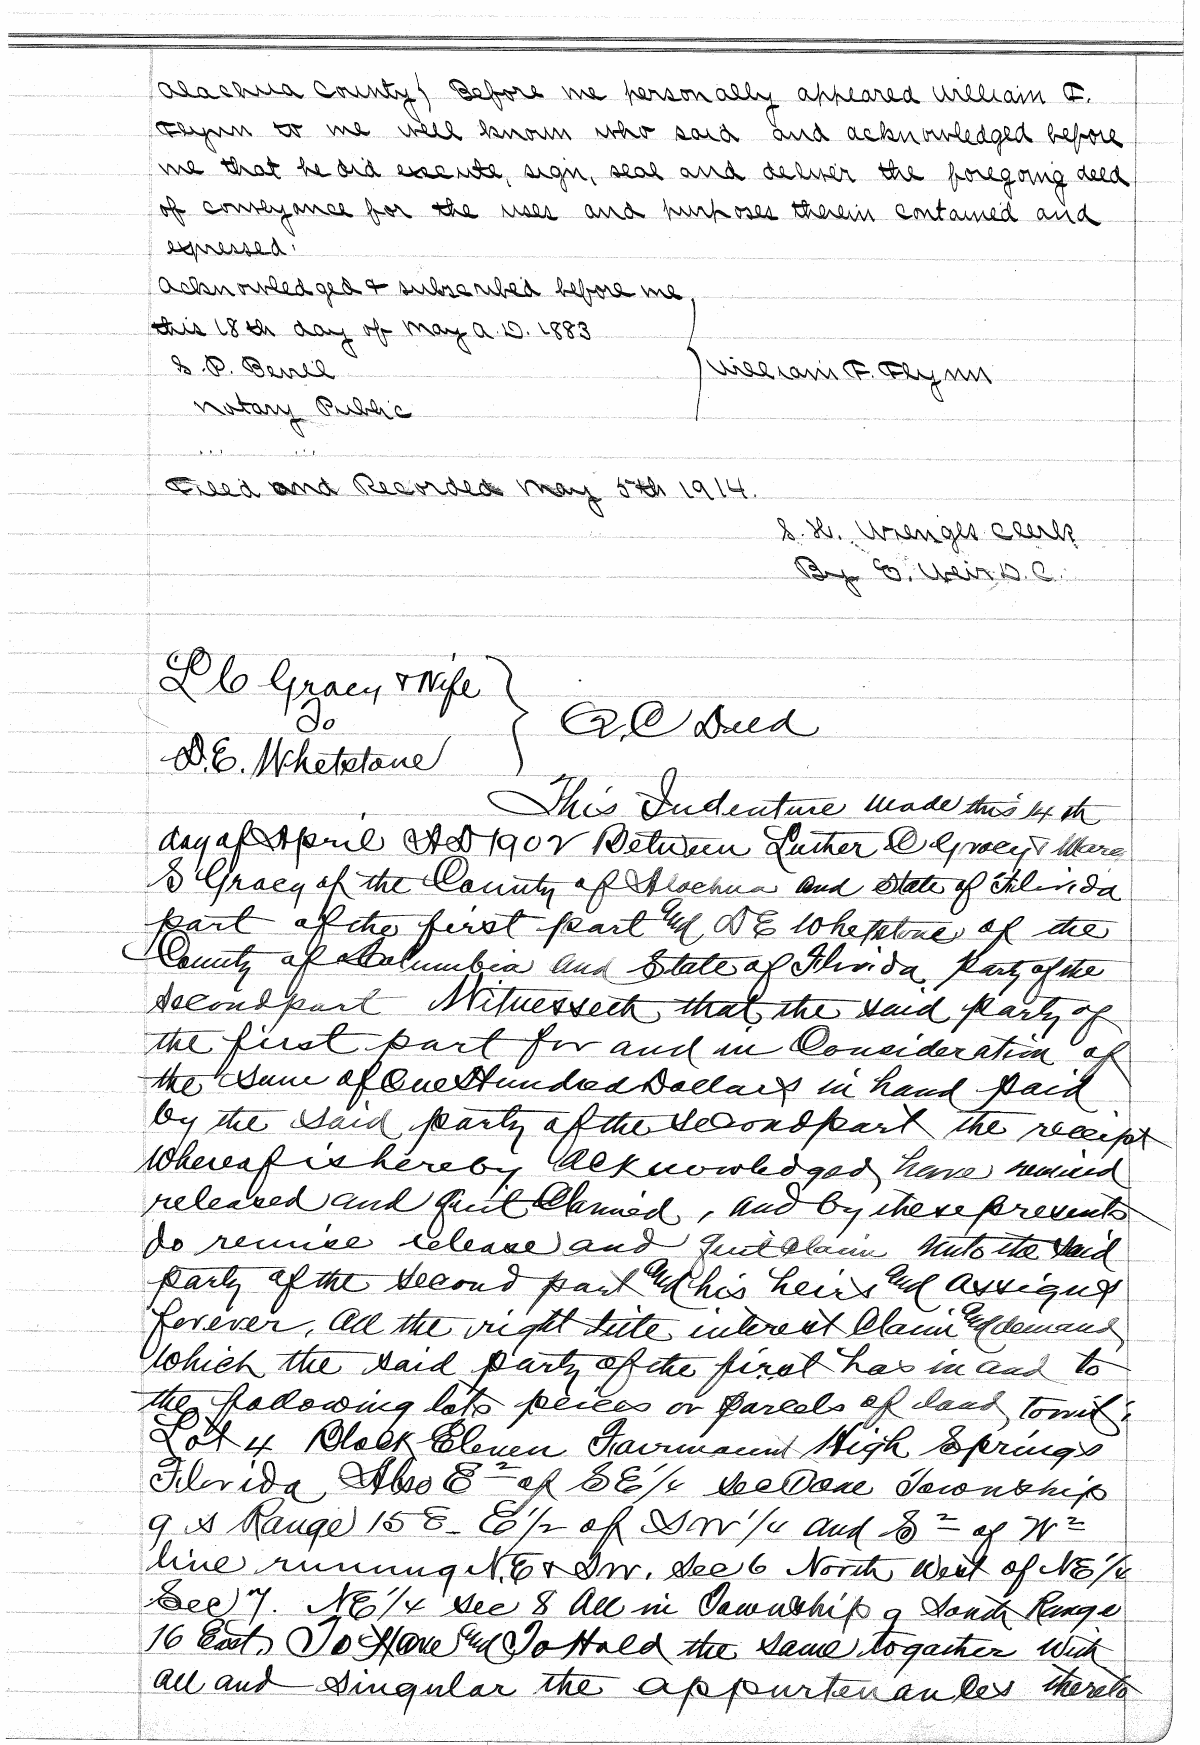 Alachua County) Before me personally appeared William F.
Flynn to me well known who said and acknowledged before
me that he did execute, sign, seal and deliver the foregoing deed
of conveyance for the uses and purposes therein contained and
expressed.
Acknowledged & subscribed before me
this 18th day of May A.D. 1883
S. P.
William F. Flynn
Notary Public
Filed and Recorded May 5th 1914.
S. H. Wienges Clerk
By E. Weir D.C.
L C Gracy & Wife
To
Q.C Deed
D.E. Whetstone
This Indenture made this 14th
day of April AD 1902 Between Luther C Gracy &
S Gracy of the County of Alachua and State of Florida
part of the first part and D E Whetstone of the
County of Columbia and State of Florida, Party of the
Second part Witnesseth that the said Party of
the first part for and in Consideration of
the Sum of One Hundred Dollars in hand paid
by the said party of the second part the receipt
whereof is hereby acknowledged, have remised
released and quit Claimed, and by these presents
do remise release and quit claim unto the said
party of the second part and his heirs and assigns
forever, all the right title interest Claim and demand
which the said party of the first has in and to
the following lots peices or parcels of land towit:
Lot 4 Block Eleven Fairmount High Springs
Florida, Also E 2 of SE 1/4 Sec One Township
9 S Range 15 E- E 1/2 of SW 1/4 and S 2 of N 2
line running N.E & SW. Sec 6 North West of NE 1/4
Sec 7. NE 1/4 sec 8 All in Township 9 South Range
16 East, To Have and To Hold the same together with
all and singular the appurtenances thereto